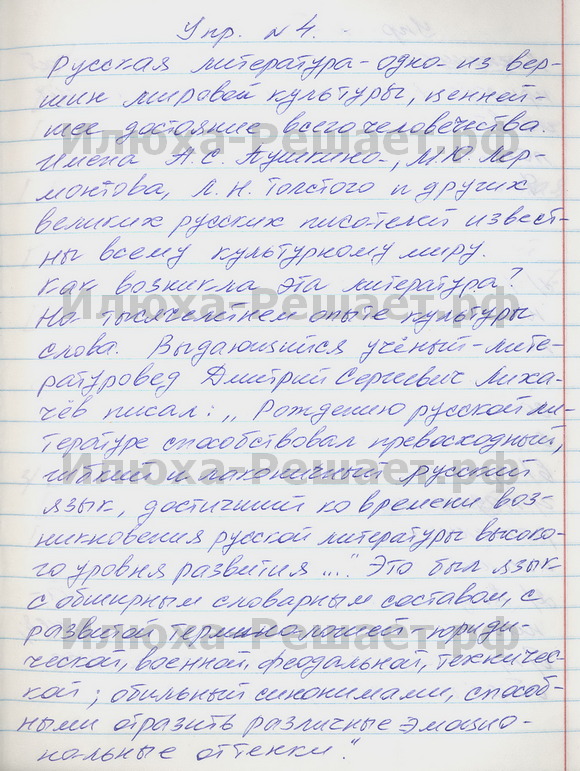 Упр. №4.
Русская литература - одна из вер-
шин мировой культуры, ценней-
шее достояние всего человечества.
Имена А.С. Пушкина, М.Ю. Лер-
монтова, Л.Н. Толстого и других
великих русских писателей извест-
ны всему культурному миру.
Как возникла эта литература?
На тысячелетнем опыте культуры
слова. Выдающийся учёный-лите-
ратуровед Дмитрий Сергеевич Лиха-
чёв писал: ,, Рождению русской ли-
тературе способствовал превосходный,
гибкий и лаконичный русский
язык, достигший ко времени воз-
никновения русской литературы высоко-
го уровня развития ...". Это был язык
с обширным словарным составом, с
развитой терминологией - юриди-
ческой, военной, феодальной, техничес-
кой; обильный синонимами, способ-
ными отразить различные эмацио-
нальные оттенки".
Илюха-Решает.рф
Илюха-Решает.рф
Илюха-Решает.рф
Илюха-Решает.рф
Илюха-Решает.рф